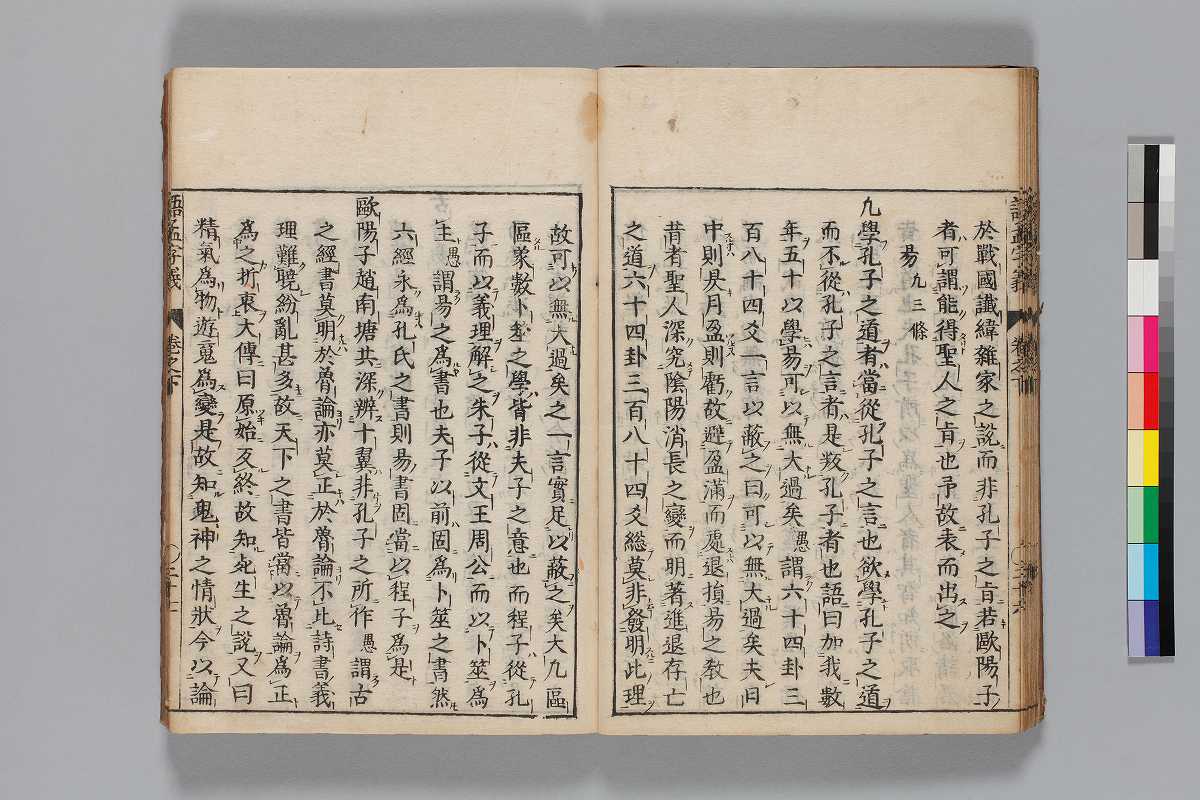 於戰國讖緯雜家之說而非孔子之旨若歐陽子
者可謂能得聖人之旨也予故表而出之
易 凡三條
凡學孔子之道者當從孔子之言也欲學孔子之道
而不從孔子之言者是叛孔子者也語曰加我數
年五十以學易可以無大過矣愚謂六十四卦三
百八十四爻一言以蔽之曰可以無大過矣夫日
中則昃月盈則虧故避盈滿而處退損易之教也
昔者聖人深究陰陽消長之變而明著進退存亡
之道六十四卦三百八十四爻総莫非發明此理
語孟字義 卷之下
故可以無大過矣之一言實足以蔽之矣大凡區
區象數卜筮之學皆非夫子之意也而程子從孔
子而以義理解之朱子從文王周公而以卜筮爲
主愚謂易之爲書也夫子以前固爲卜筮之書然
六經永爲孔氏之書則易書固當以程子爲是
歐陽子趙南塘共深辨十翼非孔子之所作愚謂古
之經書莫明於魯論亦莫正於魯論不比詩書義
理難曉紛亂甚多故天下之書皆當以魯論爲正
爲之折衷大傳曰原始反終故知死生之說又曰
精氣爲物遊䰟爲變是故知鬼神之情狀今以論
語孟字義 卷之下 二十七